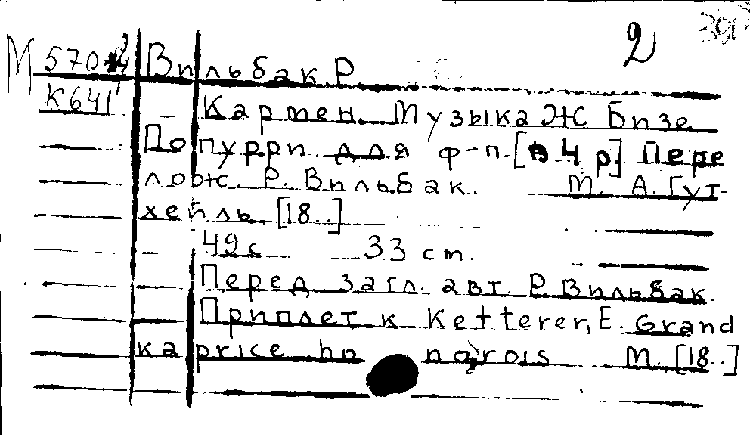 2
М 570
Вильбак Р
К641
Кармен. Музыка Ж Бизе
Попурри для ф-п. [в 4 р] Пере
лож. Р. Вильбак. М. А. Гут-
хейль [18..]
49 с 33 cm.
Перед загл. авт. Р Вильбак.
Приплет к Ketterer, E. Grand
kaprice ho
М. [18..]